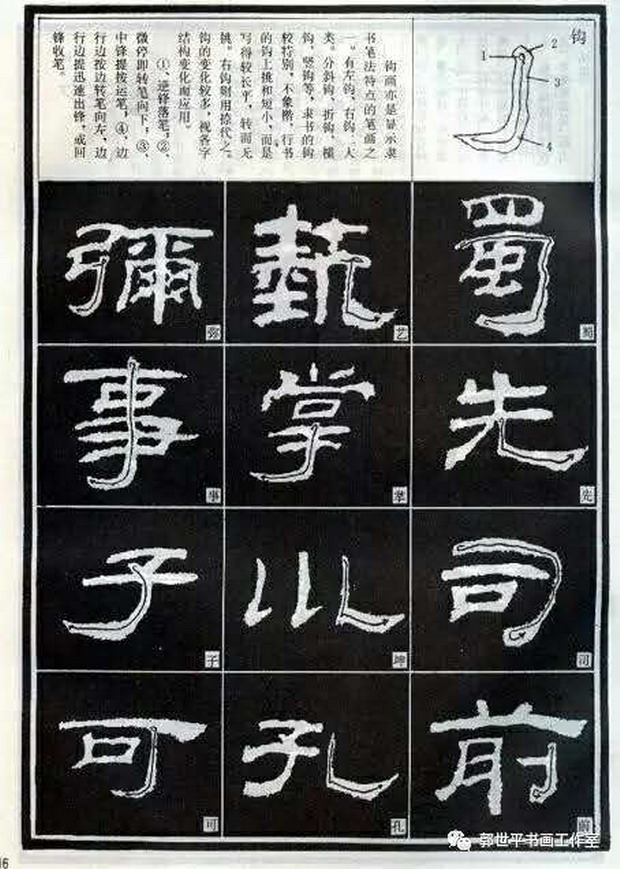 钩
1
2
3
4
钩画亦是显示隶
书笔法特点的笔画之
一。有左钩、右钩二大
类。分斜钩、折钩、横
钩、竖钩等,隶书的钩
较特别,不象楷、行书
的钩上挑和短小,而是
写得较长平,转而无
挑。右钩则用捺代之。
钩的变化较多,视各字
结构变化而应用。
①、逆锋落笔;②、
微停即转笔向下;③、
中锋提按运笔;④、边
行边按边转笔向左、边
行边提迅速出锋,或回
锋收笔。
蜀
蜀
艺
彌
弥
先
先
掌
掌
事
事
司
司
巛
坤
子
子
前
前
孔
孔
可
可
郭世平书画工作室
16